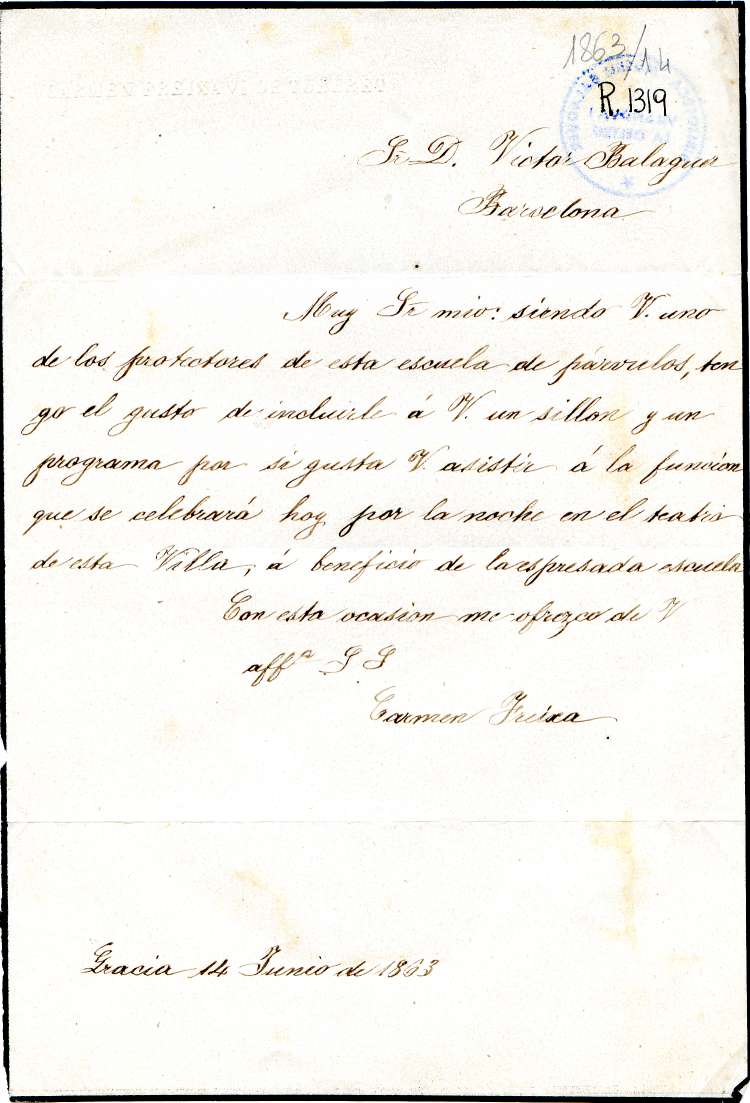 1863/14
R. 1319
Sr. D. Victor Balaguer
Barcelona
Muy Sr mio: siendo V. uno
de los protectores de esta escuela de párvulos, ten
go el gusto de incluirle á V. un sillon y un
programa por si gusta V. asistir á la funcion
que se celebrará hoy por la noche en el teatro
de esta Villa, á beneficio de la espresada escuela
Con esta ocasion me ofrezco de V
affma S S
Carmen Freixa
Gracia 14 Junio de 1863